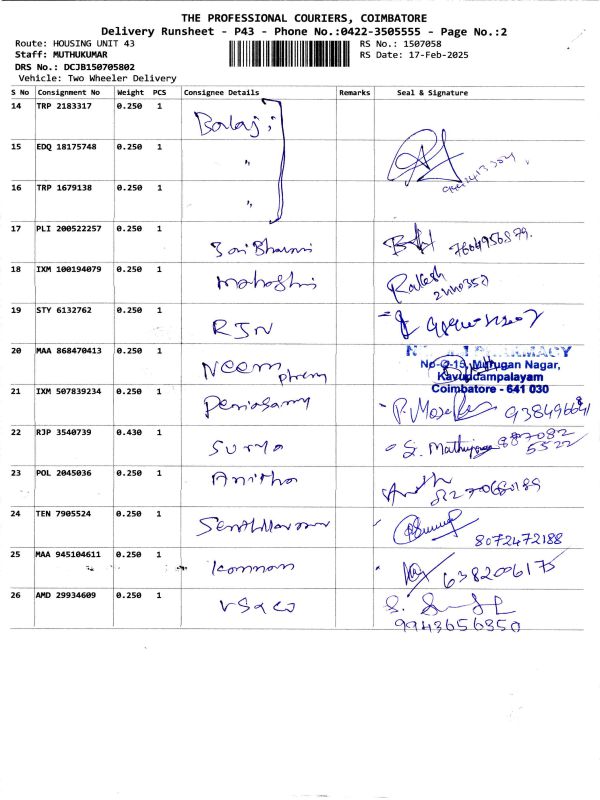 THE PROFESSIONAL COURIERS, COIMBATORE
Delivery Runsheet - P43 - Phone No.:0422-3505555 - Page No.:2
Route: HOUSING UNIT 43 RS No.: 1507058
Staff: MUTHUKUMAR RS Date: 17-Feb-2025
DRS No.: DCJB150705802
Vehicle: Two Wheeler Delivery
S No Consignment No Weight PCS Consignee Details Remarks Seal & Signature
14 TRP 2183317 0.250 1 Balaji
15 EDQ 18175748 0.250 1 "
16 TRP 1679138 0.250 1 "
17 PLI 200522257 0.250 1 7604956879.
18 IXM 100194079 0.250 1 Rakesh
19 STY 6132762 0.250 1 RJN
20 MAA 868470413 0.250 1 Neem PHARMACY
No-2-15, Murugan Nagar,
Kavundampalayam
Coimbatore - 641 030
21 IXM 507839234 0.250 1 Periasamy
22 RJP 3540739 0.430 1 Surya
23 POL 2045036 0.250 1 Anitha
24 TEN 7905524 0.250 1 8072472188
25 MAA 945104611 0.250 1 Kannan 6382006175
26 AMD 29934609 0.250 1 9943656350